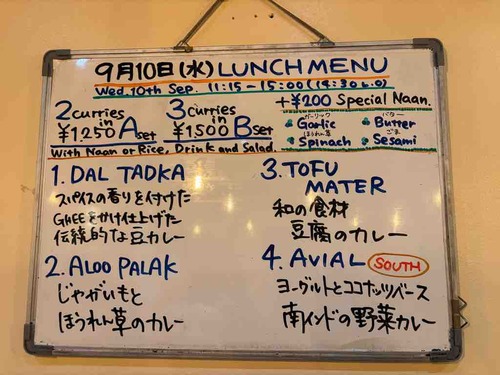 9月10日(水) LUNCH MENU
Wed. 10th Sep. 11:15-15:00 (14:30 L.O)
2 curries in ¥1,250 A set
3 curries in ¥1,500 B set
With Naan or Rice, Drink and Salad.
+¥200 Special Naan.
ガーリック
Garlic
バター
Butter
ほうれん草
Spinach
ごま
Sesami
1. DAL TADKA
スパイスの香りを付けた
GHEEをかけ仕上げた
伝統的な豆カレー
2. ALOO PALAK
じゃがいもと
ほうれん草のカレー
3. TOFU
MATER
和の食材
豆腐のカレー
4. AVIAL SOUTH
ヨーグルトとココナッツベース
南インドの野菜カレー